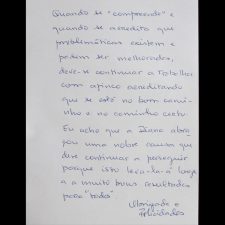 Quando se "compreende" e
quando se acredita que
problemáticas existem e
podem ser melhoradas,
deve-se continuar a trabalhar
com afinco acreditando
que se está no bom cami-
nho e no caminho certo.
Eu acho que a Diana abra-
çou uma nobre causa que
deve continuar a perseguir
porque isso levá-la-á longe
e a muito bons resultados
para "todos".
Obrigada e
Felicidades